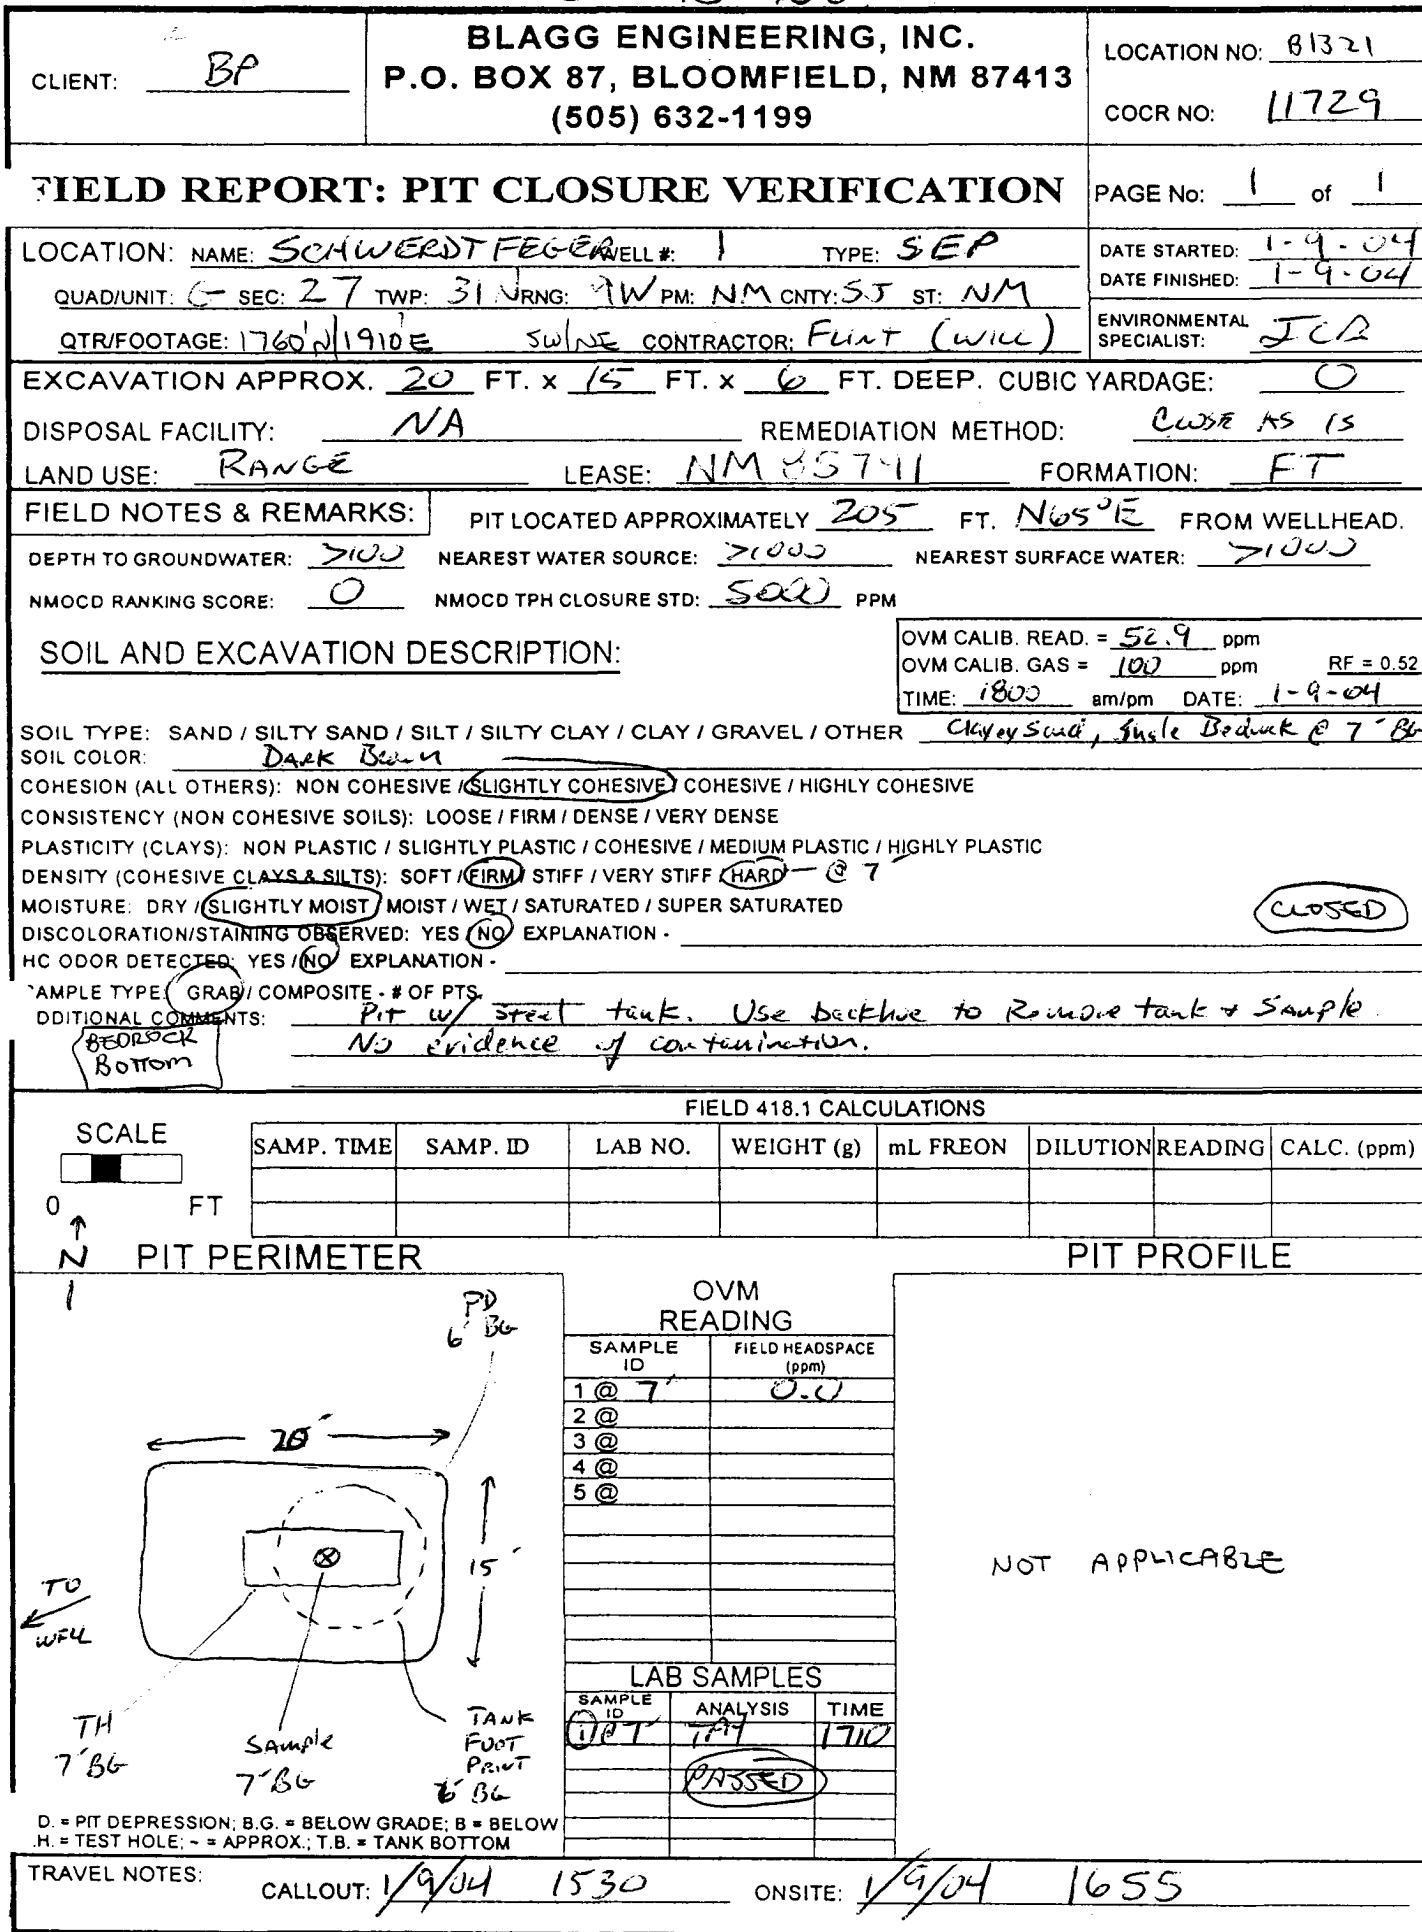 BLAGG ENGINEERING, INC.
P.O. BOX 87, BLOOMFIELD, NM 87413
(505) 632-1199
CLIENT: BP
LOCATION NO: B1321
COCR NO: 11729
FIELD REPORT: PIT CLOSURE VERIFICATION
PAGE No: 1 of 1
LOCATION: NAME: SCHWERDTFEGER WELL #: 1 TYPE: SEP
QUAD/UNIT: G SEC: 27 TWP: 31N RNG: 9W PM: NM CNTY: SJ ST: NM
QTR/FOOTAGE: 1760'N/1910'E SW/NE CONTRACTOR: FLINT (WILL)
DATE STARTED: 1-9-04
DATE FINISHED: 1-9-04
ENVIRONMENTAL
SPECIALIST: JCB
EXCAVATION APPROX. 20 FT. x 15 FT. x 6 FT. DEEP. CUBIC YARDAGE: 0
DISPOSAL FACILITY: NA REMEDIATION METHOD: CLOSE AS IS
LAND USE: RANGE LEASE: NM FORMATION: FT
FIELD NOTES & REMARKS: PIT LOCATED APPROXIMATELY 205 FT. N65°E FROM WELLHEAD.
DEPTH TO GROUNDWATER: >100 NEAREST WATER SOURCE: >1000 NEAREST SURFACE WATER: >1000
NMOCD RANKING SCORE: 0 NMOCD TPH CLOSURE STD: 5000 PPM
SOIL AND EXCAVATION DESCRIPTION:
OVM CALIB. READ. = 52.9 ppm
OVM CALIB. GAS = 100 ppm RF = 0.52
TIME: 1800 am/pm DATE: 1-9-04
SOIL TYPE: SAND / SILTY SAND / SILT / SILTY CLAY / CLAY / GRAVEL / OTHER Clayey Sand, Shale Bedrock @ 7' BG
SOIL COLOR: DARK Brown
COHESION (ALL OTHERS): NON COHESIVE / SLIGHTLY COHESIVE / COHESIVE / HIGHLY COHESIVE
CONSISTENCY (NON COHESIVE SOILS): LOOSE / FIRM / DENSE / VERY DENSE
PLASTICITY (CLAYS): NON PLASTIC / SLIGHTLY PLASTIC / COHESIVE / MEDIUM PLASTIC / HIGHLY PLASTIC
DENSITY (COHESIVE CLAYS & SILTS): SOFT / FIRM / STIFF / VERY STIFF / HARD - @ 7'
MOISTURE: DRY / SLIGHTLY MOIST / MOIST / WET / SATURATED / SUPER SATURATED
CLOSED
DISCOLORATION/STAINING OBSERVED: YES / NO EXPLANATION -
HC ODOR DETECTED: YES / NO EXPLANATION -
AMPLE TYPE: GRAB / COMPOSITE - # OF PTS.
DDITIONAL COMMENTS: Pit w/ steel tank. Use backhoe to Remove tank + Sample.
No evidence of contamination.
BEDROCK
BOTTOM
FIELD 418.1 CALCULATIONS
SCALE
0 FT
SAMP. TIME SAMP. ID LAB NO. WEIGHT (g) mL FREON DILUTION READING CALC. (ppm)
N
PIT PERIMETER
PIT PROFILE
PD
6' BG
20'
15'
TO
WELL
TH
7' BG
Sample
7' BG
TANK
FOOT
PRINT
6' BG
OVM
READING
SAMPLE
ID
FIELD HEADSPACE
(ppm)
1 @ 7' 0.0
2 @
3 @
4 @
5 @
NOT APPLICABLE
LAB SAMPLES
SAMPLE
ID
ANALYSIS TIME
1@7' TPH 1710
PASSED
D. = PIT DEPRESSION; B.G. = BELOW GRADE; B = BELOW
.H. = TEST HOLE; ~ = APPROX.; T.B. = TANK BOTTOM
TRAVEL NOTES: CALLOUT: 1/9/04 1530 ONSITE: 1/9/04 1655